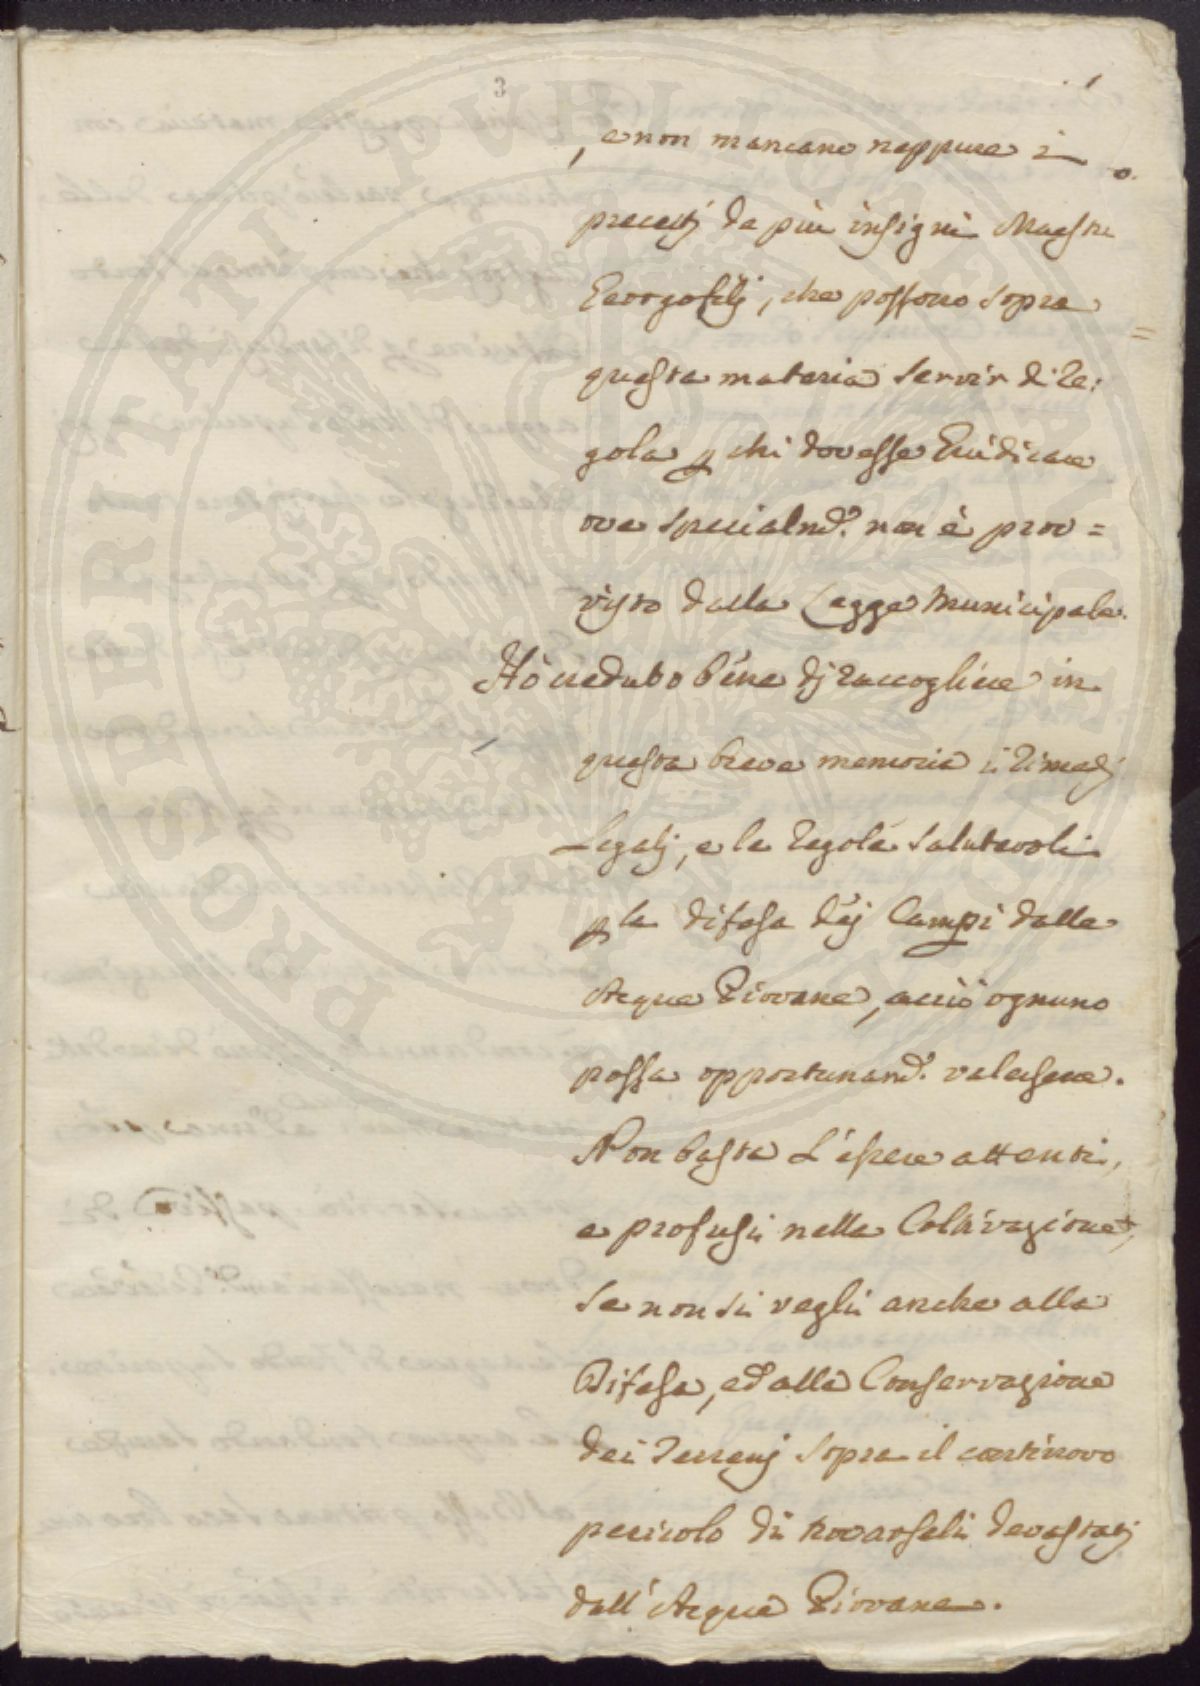 3
, e non mancano neppure i
precetti de più insigni Maestri
Georgofilj, che possono sopra
questa materia servir di Re:
gola p chi dovesse Giudicare
ove specialm.e non è prov=
visto dalla Legge Municipale.
Hò creduto bene dj raccogliere in
questa breve memoria i rimedj
Legalj, e le regole salutevoli
p la difesa dej Campi dalle
Acque Piovane, acciò ognuno
possa opportunam.e valersene.
Non basta l'essere attenti,
e profusi nella Coltivazione,
se non si vegli anche alla
Difesa, ed alla Conservazione
dei Terrenj sopra il continovo
pericolo di trovarseli devastatj
dall'Acque Piovane.
PROSPERITATI PVBLICAE AVGENDAE